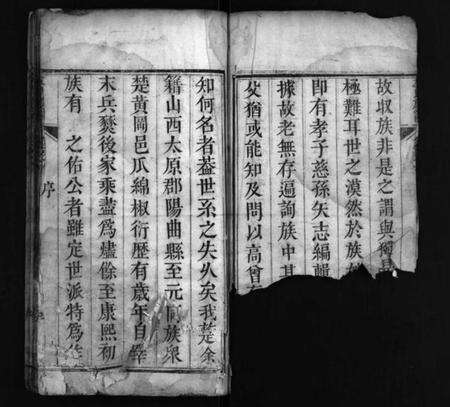 故収族非是之謂與獨
極難耳世之漠然於族
即有孝子慈孫矢志編輯
據故老無存遍詢族中其
父猶或能知及問以高曾
知何名者葢世系之失久矣我楚余
籍山西太原郡陽曲縣至元
族衆
楚黃岡邑瓜綿椒衍歷有歲年自
末兵燹後家乘盡為燼餘至康熙初
族有 之佑公者雖定世派特為
序